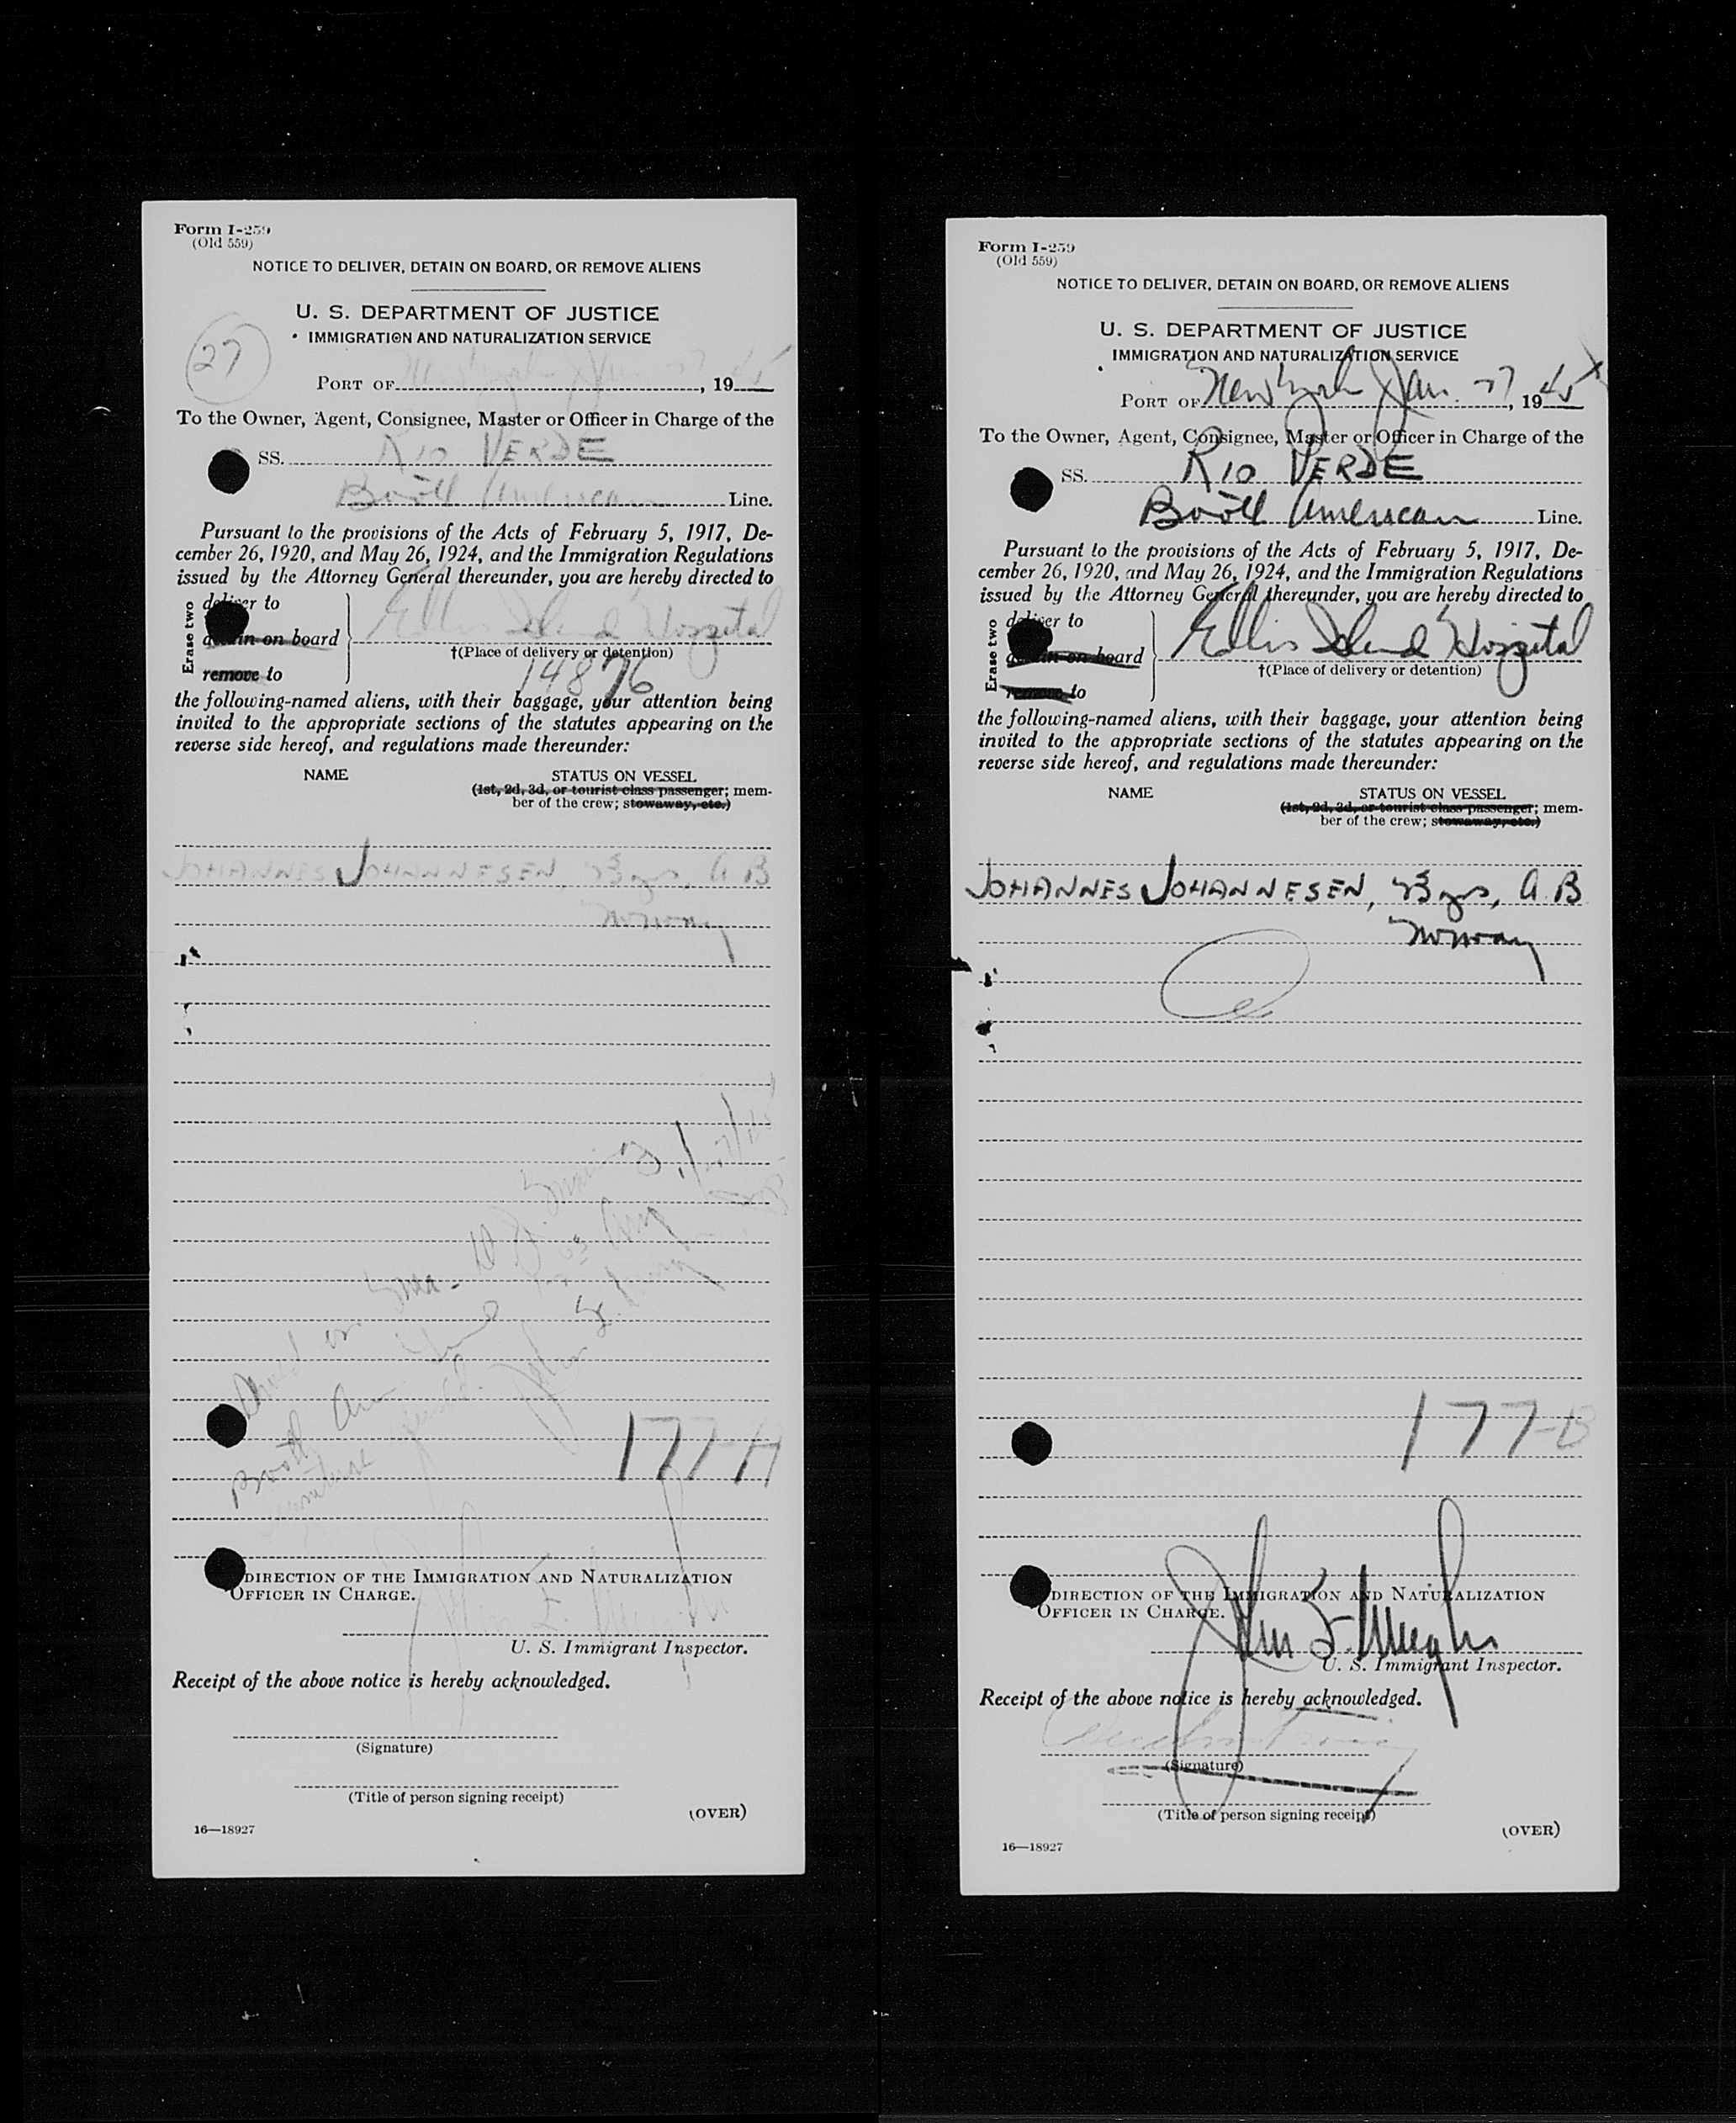 Form I-259
(Old 559)
NOTICE TO DELIVER, DETAIN ON BOARD, OR REMOVE ALIENS
U. S. DEPARTMENT OF JUSTICE
IMMIGRATION AND NATURALIZATION SERVICE
27
PORT OF New York Jan. 27, 1945
To the Owner, Agent, Consignee, Master or Officer in Charge of the
SS. RIO VERDE
Booth American Line.
Pursuant to the provisions of the Acts of February 5, 1917, De-
cember 26, 1920, and May 26, 1924, and the Immigration Regulations
issued by the Attorney General thereunder, you are hereby directed to
Erase two
deliver to
detain on board
remove to
Ellis Island Hospital
†(Place of delivery or detention)
14876
the following-named aliens, with their baggage, your attention being
invited to the appropriate sections of the statutes appearing on the
reverse side hereof, and regulations made thereunder:
NAME STATUS ON VESSEL
(1st, 2d, 3d, or tourist class passenger; mem-
ber of the crew; stowaway, etc.)
JOHANNES JOHANNESEN, A.B
Norway
177-A
DIRECTION OF THE IMMIGRATION AND NATURALIZATION
OFFICER IN CHARGE.
U. S. Immigrant Inspector.
Receipt of the above notice is hereby acknowledged.
(Signature)
(Title of person signing receipt)
(OVER)
16—18927
Form I-259
(Old 559)
NOTICE TO DELIVER, DETAIN ON BOARD, OR REMOVE ALIENS
U. S. DEPARTMENT OF JUSTICE
IMMIGRATION AND NATURALIZATION SERVICE
PORT OF New York Jan. 27, 1945
To the Owner, Agent, Consignee, Master or Officer in Charge of the
SS. RIO VERDE
Booth American Line.
Pursuant to the provisions of the Acts of February 5, 1917, De-
cember 26, 1920, and May 26, 1924, and the Immigration Regulations
issued by the Attorney General thereunder, you are hereby directed to
Erase two
deliver to
detain on board
remove to
Ellis Island Hospital
†(Place of delivery or detention)
the following-named aliens, with their baggage, your attention being
invited to the appropriate sections of the statutes appearing on the
reverse side hereof, and regulations made thereunder:
NAME STATUS ON VESSEL
(1st, 2d, 3d, or tourist class passenger; mem-
ber of the crew; stowaway, etc.)
JOHANNES JOHANNESEN, 23 yrs, A.B
Norway
177-B
DIRECTION OF THE IMMIGRATION AND NATURALIZATION
OFFICER IN CHARGE.
U. S. Immigrant Inspector.
Receipt of the above notice is hereby acknowledged.
(Signature)
(Title of person signing receipt)
(OVER)
16—18927